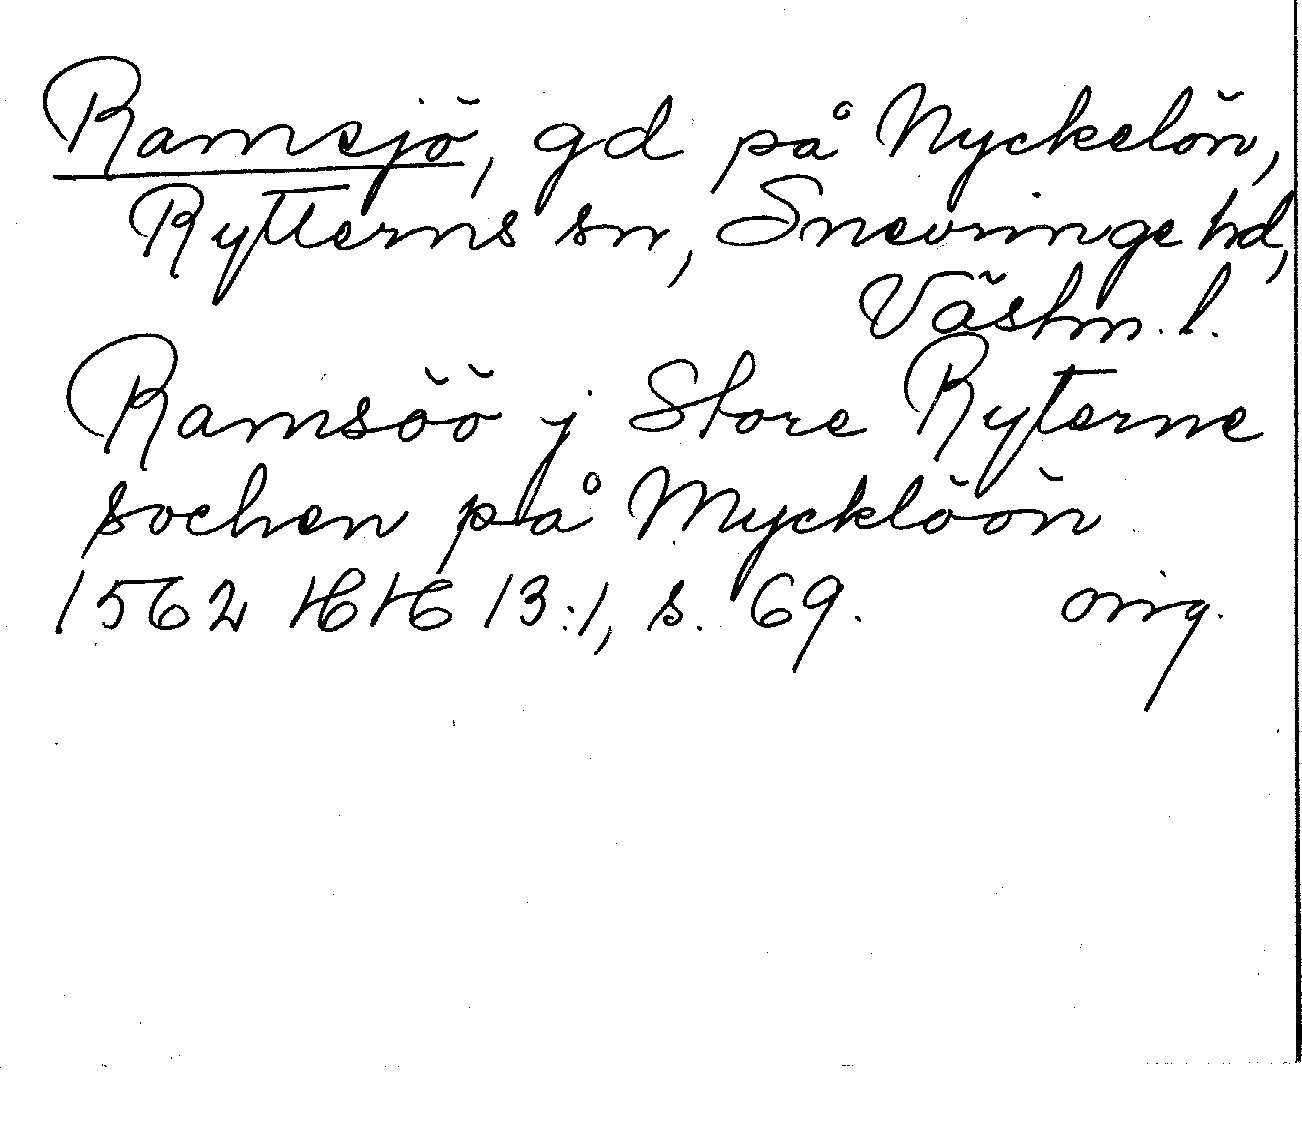 Ramsjö, gd på Nyckelön,
Rytterns sn, Snevringe hd,
Västm. l.
Ramsöö j Store Ryterne
sochen på Mycklöön
1562 HH 13:1, s. 69. orig.